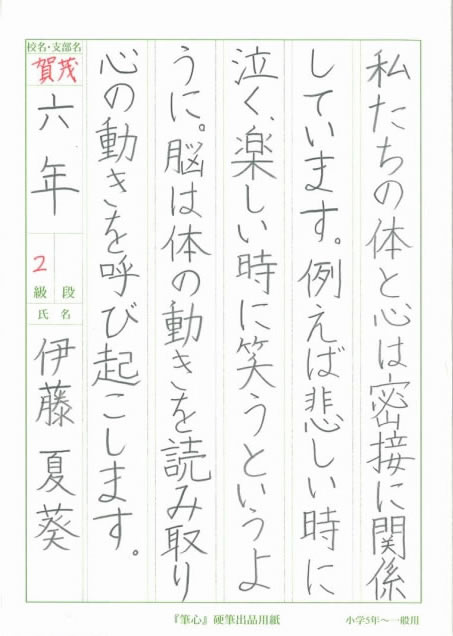 私たちの体と心は密接に関係
しています。例えば悲しい時に
泣く、楽しい時に笑うというよ
うに。脳は体の動きを読み取り
心の動きを呼び起こします。
校名・支部名
賀茂
六年
2
級段
氏名
伊藤夏葵
『筆心』硬筆出品用紙
小学5年〜一般用